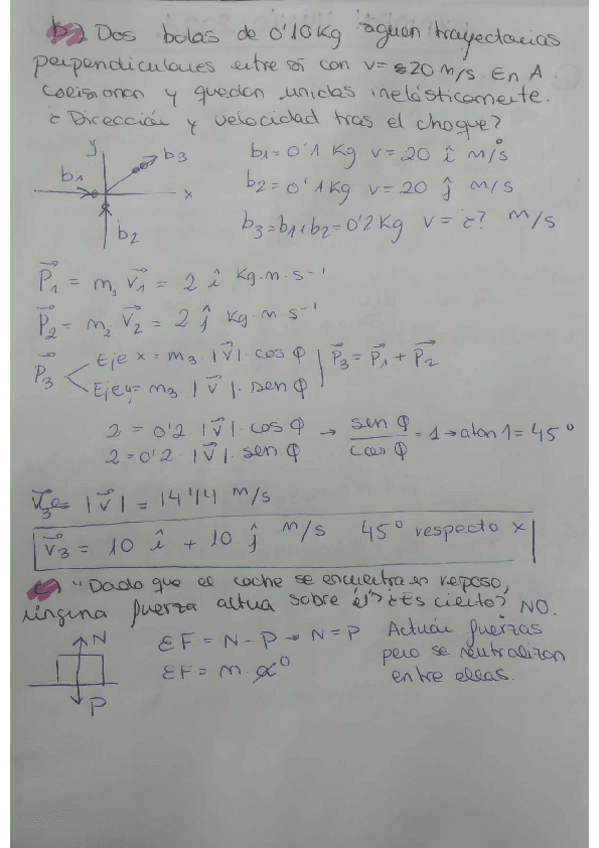 b.) Dos bolas de 0'10 Kg siguen trayectorias
perpendiculares entre sí con v = 20 m/s En A
colisionan y quedan unidas inelásticamente.
¿Dirección y velocidad tras el choque?
y
b3
b1
x
b2
b1 = 0'1 Kg v = 20 î m/s
b2 = 0'1 Kg v = 20 ĵ m/s
b3 = b1 + b2 = 0'2 Kg v = ¿? m/s
P⃗1 = m1 v⃗1 = 2 î Kg·m·s⁻¹
P⃗2 = m2 v⃗2 = 2 ĵ Kg·m·s⁻¹
P⃗3 Eje x = m3 · |v⃗| · cos φ P⃗3 = P⃗1 + P⃗2
Eje y = m3 · |v⃗| · sen φ
2 = 0'2 · |v⃗| · cos φ → sen φ / cos φ = 1 → atan 1 = 45º
2 = 0'2 · |v⃗| · sen φ
|v⃗| = 14'14 m/s
v⃗3 = 10 î + 10 ĵ m/s 45º respecto x
c.) "Dado que el coche se encuentra en reposo,
ninguna fuerza actua sobre él" ¿Es cierto? NO.
N
P
ΣF = N - P → N = P
ΣF = m · a⁰
Actúan fuerzas
pero se neutralizan
entre ellas.